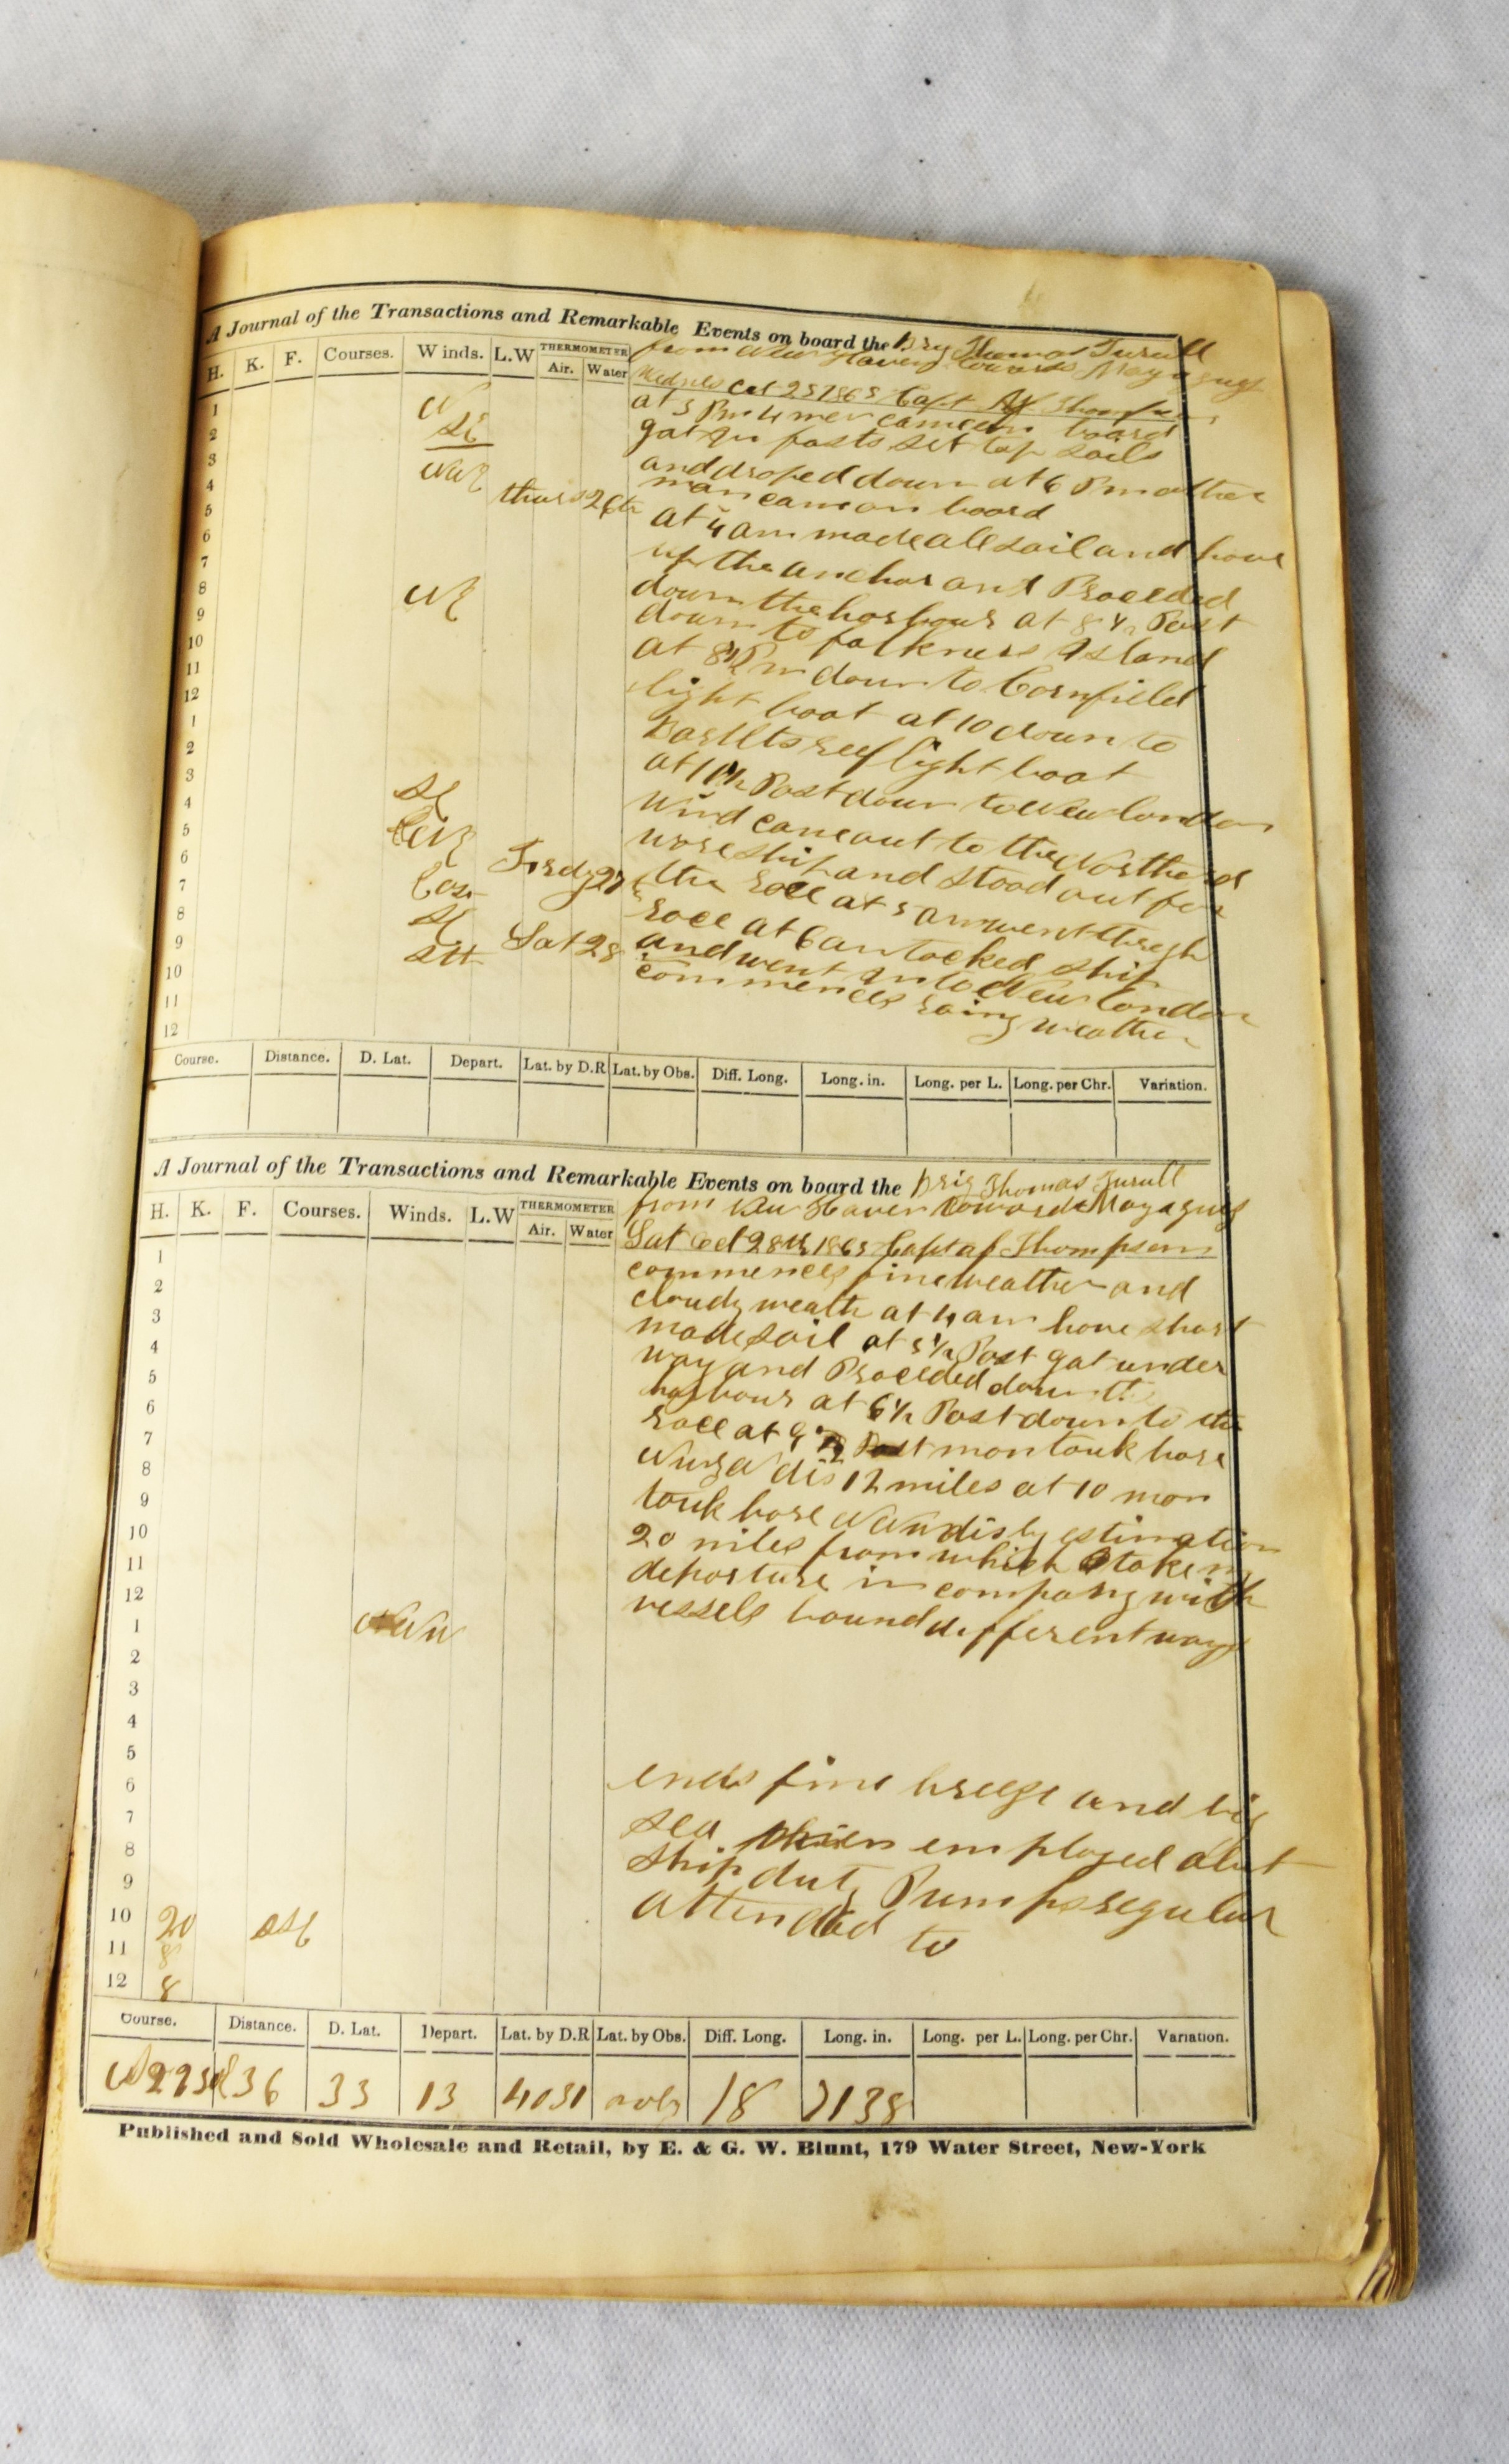 A Journal of the Transactions and Remarkable Events on board the Brig Thomas Turull
H. K. F. Courses. Winds. L.W THERMOMETER Air. Water
from New Haven towards Mayaguez
Wednes Oct 25 1865 Capt Thompson
1
2
3
4
5
6
7
8
9
10
11
12
1
2
3
4
5
6
7
8
9
10
11
12
N
SE
NE
SE
SE
at 5 Pm 4 men came on board
got in fasts set top sails
and droped down at 6 Pm other
man came on board
thurs 26th
at 4 am made all sail and hove
up the anchor and Proceded
down the harbour at 8 1/2 Past
down to falkners Island
at 8 1/2 Pm down to Cornfield
light boat at 10 down to
Bartlts reef light boat
at 10 1/2 Past down to New london
wind came out to the Northerd
wore ship and stood out for
Frsdy 27
the race at 5 am went throgh
race at 6 am tacked ship
and went into New london
Sat 28
commences rainy weather
Course. Distance. D. Lat. Depart. Lat. by D.R Lat. by Obs. Diff. Long. Long. in. Long. per L. Long. per Chr. Variation.
A Journal of the Transactions and Remarkable Events on board the Brig Thomas Turull
H. K. F. Courses. Winds. L.W THERMOMETER Air. Water
from New Haven towards Mayaguez
Sat Oct 28th 1865 Capt af Thompson
1
2
3
4
5
6
7
8
9
10
11
12
1
2
3
4
5
6
7
8
9
10 20 SSE
11 8
12 8
NNW
commences fine weather and
cloudy weathr at 4 am hove short
made sail at 5 1/2 Past got under
way and Proceded down the
harbour at 6 1/2 Past down to the
race at 9 1/2 Past montauk bore
dis 12 miles at 10 mon
touk bore NNW dis by estimation
20 miles from which I take my
departure in company with
vessels bound different ways
ends fine breeze and big
sea men employed abut
ship duty Pumps regular
attended to
Course. Distance. D. Lat. Depart. Lat. by D.R Lat. by Obs. Diff. Long. Long. in. Long. per L. Long. per Chr. Variation.
36 33 13 4031 nobs 18 7138
Published and Sold Wholesale and Retail, by E. & G. W. Blunt, 179 Water Street, New-York